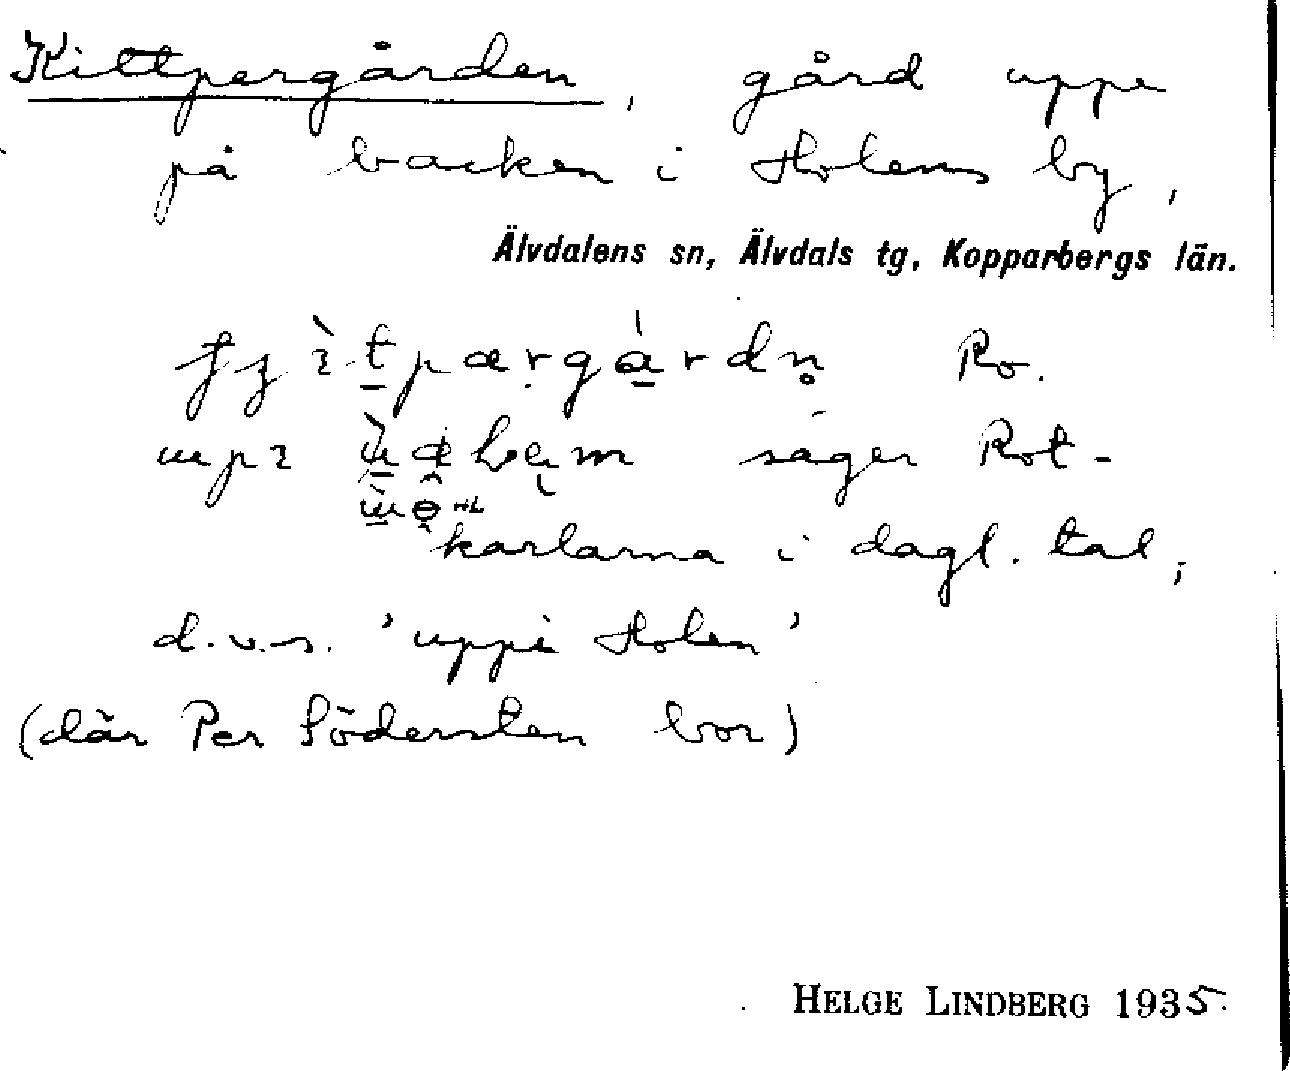 Kittpergården, gård uppe
på backen i Holens by,
Älvdalens sn, Älvdals tg, Kopparbergs län.
Ro.
säger Rot-
HL
karlarna i dagl. tal,
d.v.s. 'uppi Holen'
(där Per Södersten bor)
HELGE LINDBERG 1935.